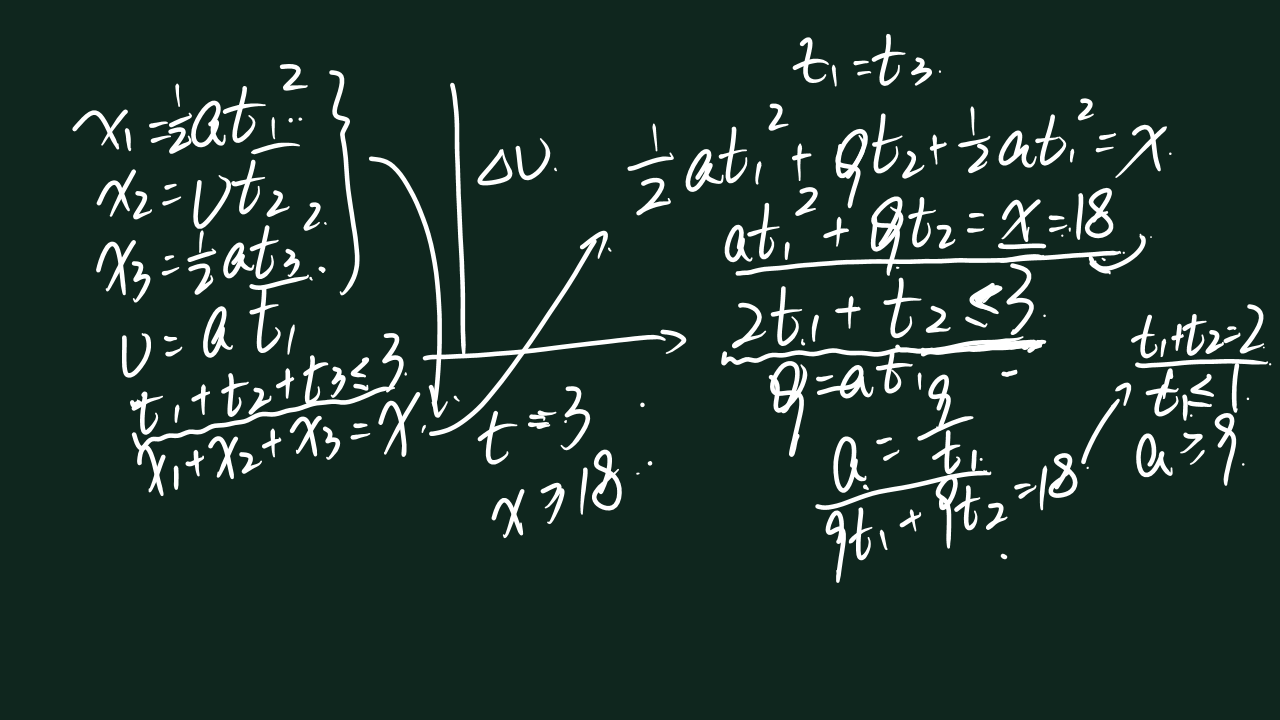 x₁=½at₁²
x₂=υt₂
x₃=½at₃²
υ=at₁
t₁+t₂+t₃≤3
x₁+x₂+x₃=x
Δυ
t=3
x≥18
t₁=t₃
½at₁²+9t₂+½at₁²=x
at₁²+9t₂=x=18
2t₁+t₂≤3
9=at₁
a=9/t₁
9t₁+9t₂=18
t₁+t₂=2
t₁≤1
a≥9